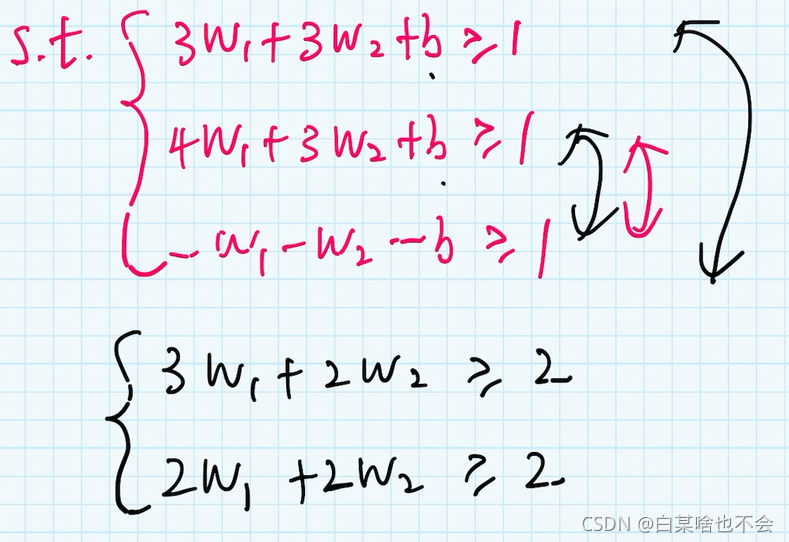 s.t. { 3w₁+3w₂+b ≥ 1
4w₁+3w₂+b ≥ 1
-w₁-w₂-b ≥ 1
{ 3w₁+2w₂ ≥ 2
2w₁+2w₂ ≥ 2
CSDN @白某啥也不会